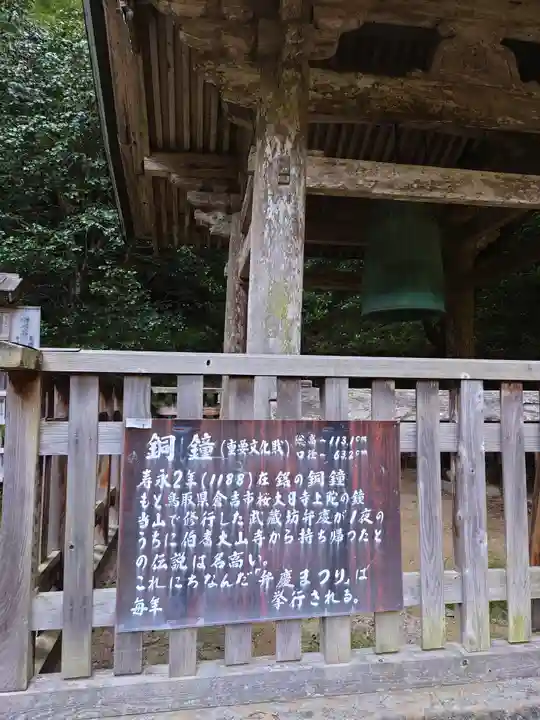 銅鐘(重要文化財) 総高〜113.1cm
口径〜63.2cm
寿永2年(1188)在銘の銅鐘
もと鳥取県倉吉市桜大日寺上院の鐘
当山で修行した武蔵坊弁慶が1夜の
うちに伯耆大山寺から持ち帰ったと
の伝説は名高い。
これにちなんだ「弁慶まつり」は
毎年 挙行される。